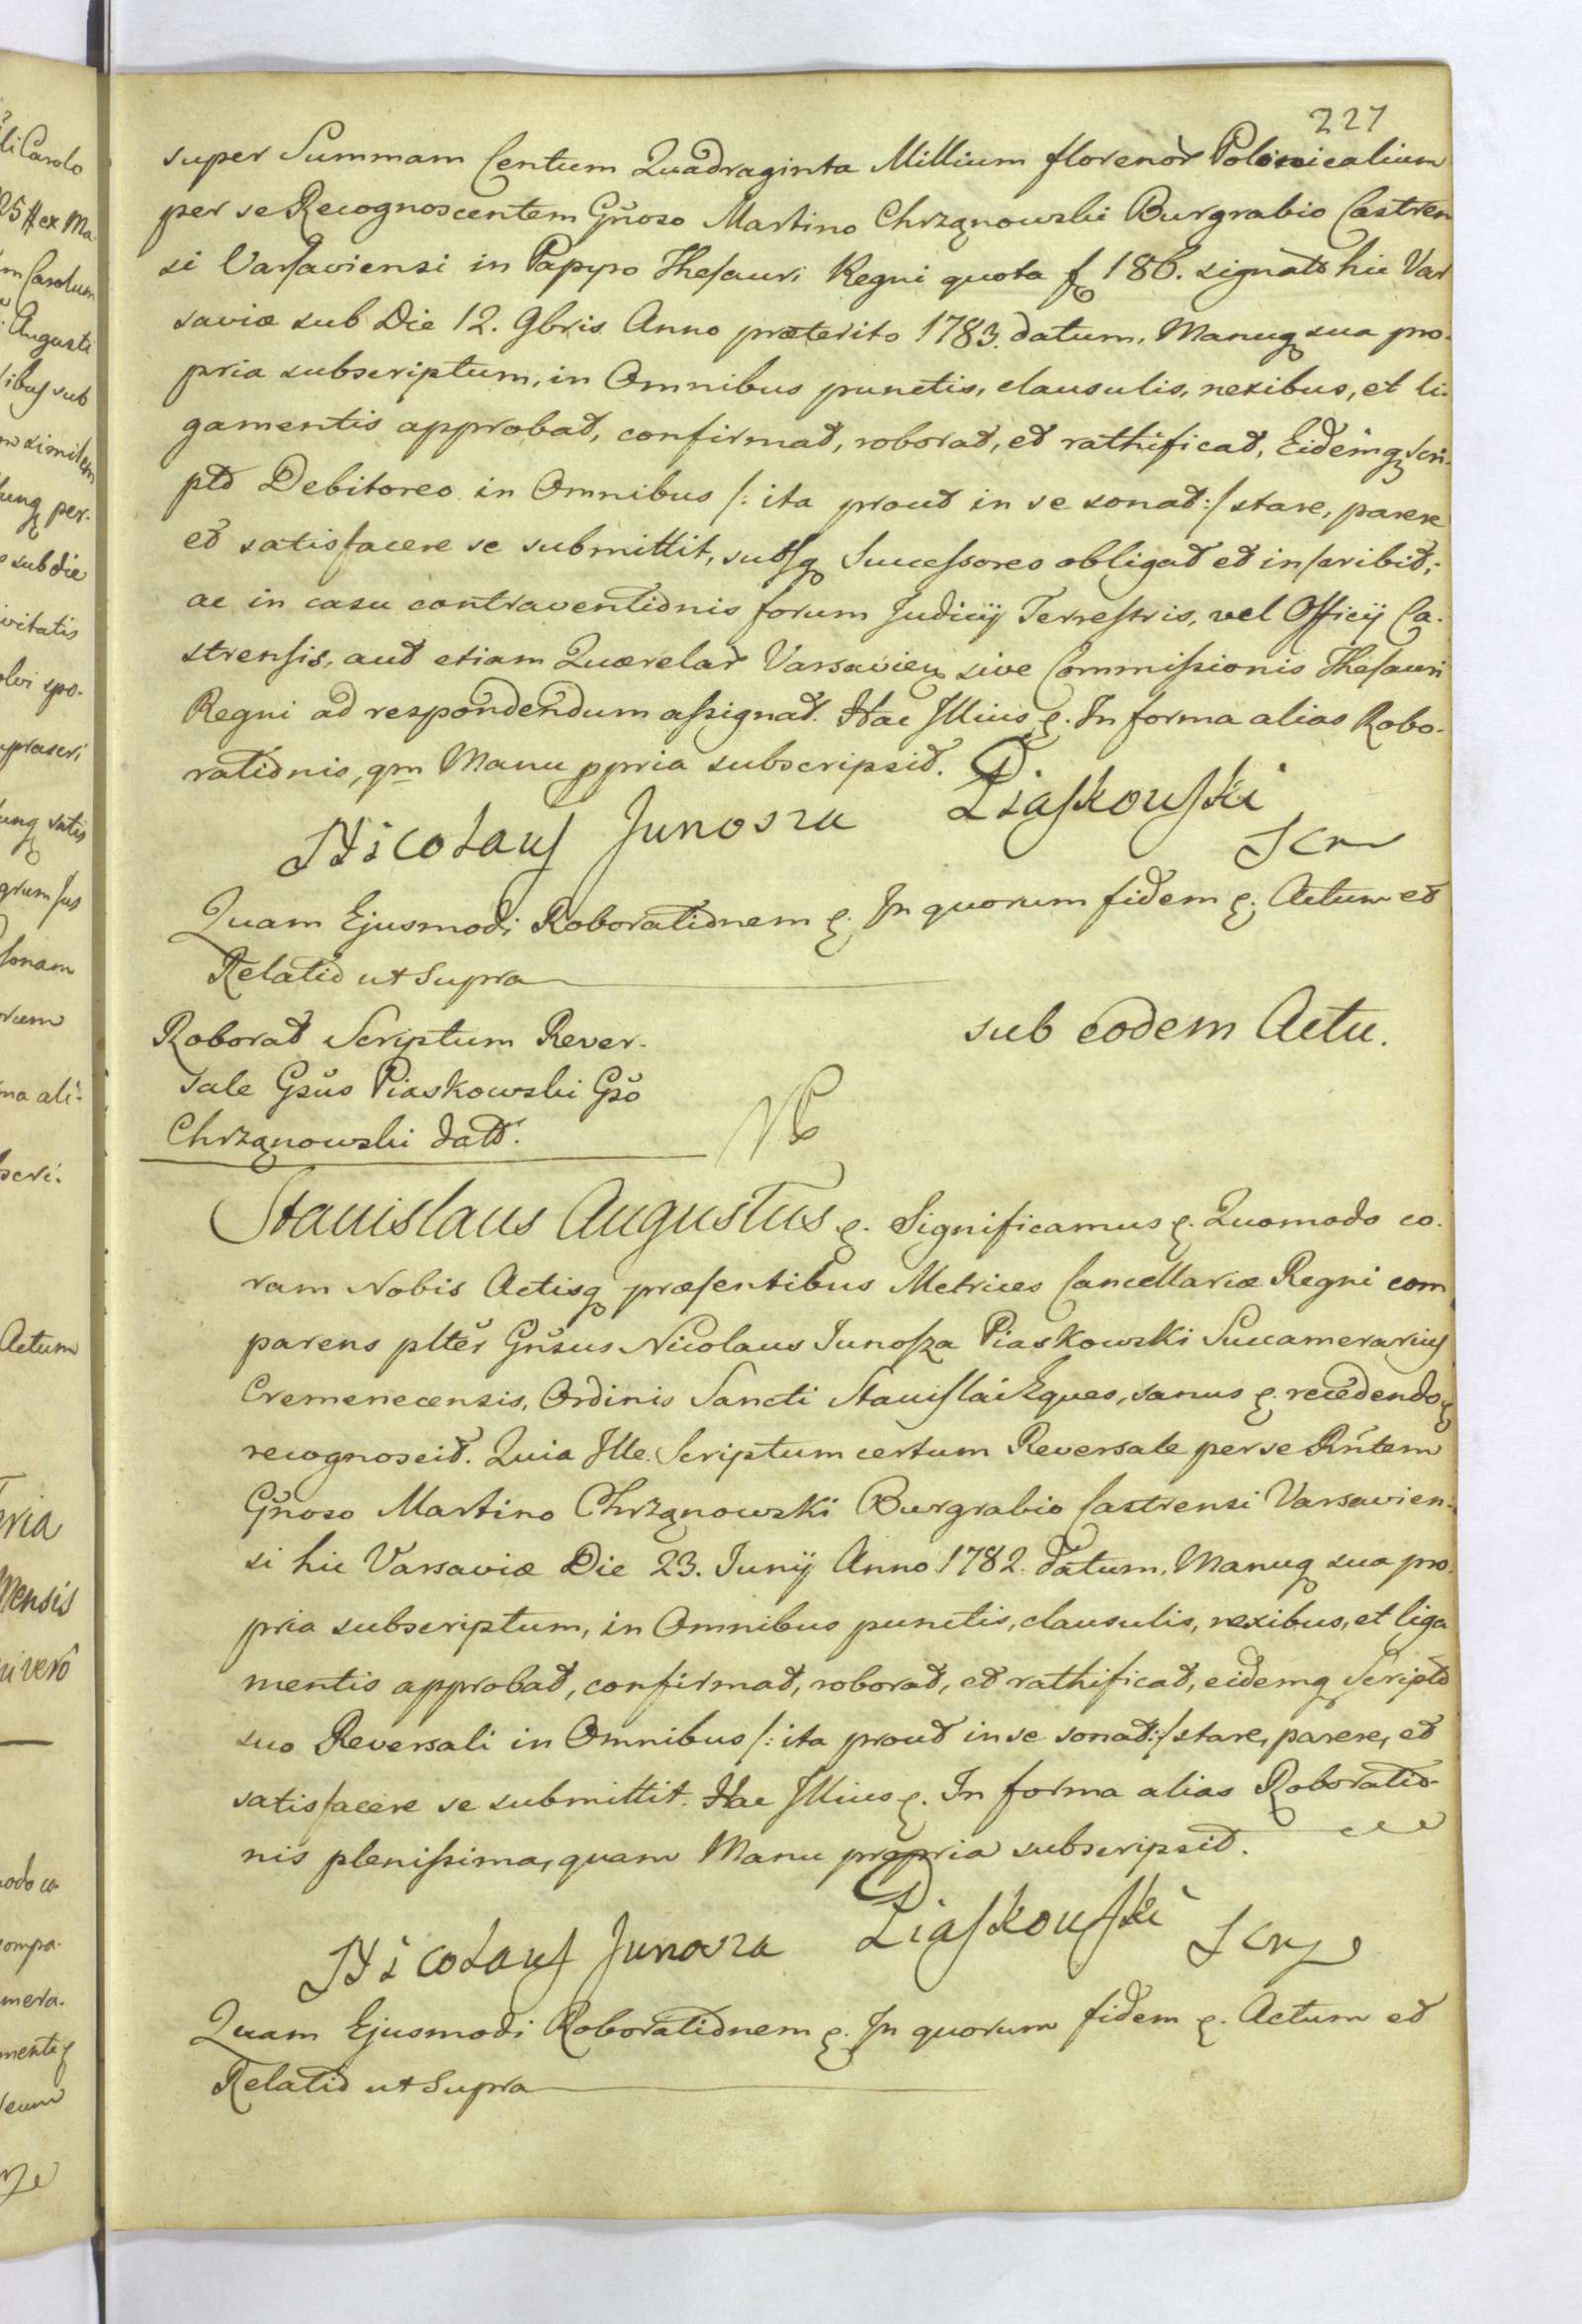 227
super Summam Centum Quadraginta Millium florenor Polonicalium
per se Recognoscentem Gñoso Martino Chrząnowski Burgrabio Castren
si Varsaviensi in Papyro Thesauri Regni quota f 186. signato hic Var
saviæ sub Die 12. 9bris Anno præterito 1783. datum, Manuq sua pro-
pria subscriptum, in Omnibus punctis, clausulis, nexibus, et li-
gamentis approbat, confirmat, roborat, et rathificat, Eidemq Scri-
pto Debitoreo in Omnibus /: ita prout in se sonat :/ stare, parere
et satisfacere se submittit, suosq Successores obligat et inscribit;
ac in casu contraventionis forum Judicij Terrestris, vel Officij Ca-
strensis, aut etiam Quærelar Varsavien sive Commissionis Thesauri
Regni ad respondendum assignat. Hac Illius ę. In forma alias Robo-
rationis, qm Manu ppria subscripsit.
Nicolaus Junosza Piaskowski
Quam Ejusmodi Roborationem ę. In quorum fidem ę. Actum et
Relatio ut Supra
sub eodem Actu.
Roborat Scriptum Rever-
sale Gsŭs Piaskowski Gso
Chrząnowski dato.
Stanislaus Augustus ę. Significamus ę. Quomodo co-
ram Nobis Actisq præsentibus Metrices Cancellariæ Regni com
parens plter Gnsus Nicolaus Junosza Piaskowski Succamerarius
Cremenecensis, Ordinis Sancti Stanislai Eques, sanus ę. recedendo ę
recognoscit. Quia Ille Scriptum certum Reversale per se Rñtem
Gñoso Martino Chrząnowski Burgrabio Castrensi Varsavien-
si hic Varsaviæ Die 23. Junij Anno 1782. datum, Manuq sua pro-
pria subscriptum, in Omnibus punctis, clausulis, nexibus, et liga
mentis approbat, confirmat, roborat, et rathificat, eidemq Scripto
suo Reversali in Omnibus /: ita prout in se sonat :/ stare, parere, et
satisfacere se submittit. Hac Illius ę. In forma alias Roboratio-
nis plenissima, quam Manu propria subscripsit.
Nicolaus Junosza Piaskowski
Quam Ejusmodi Roborationem ę. In quorum fidem ę. Actum et
Relatio ut Supra